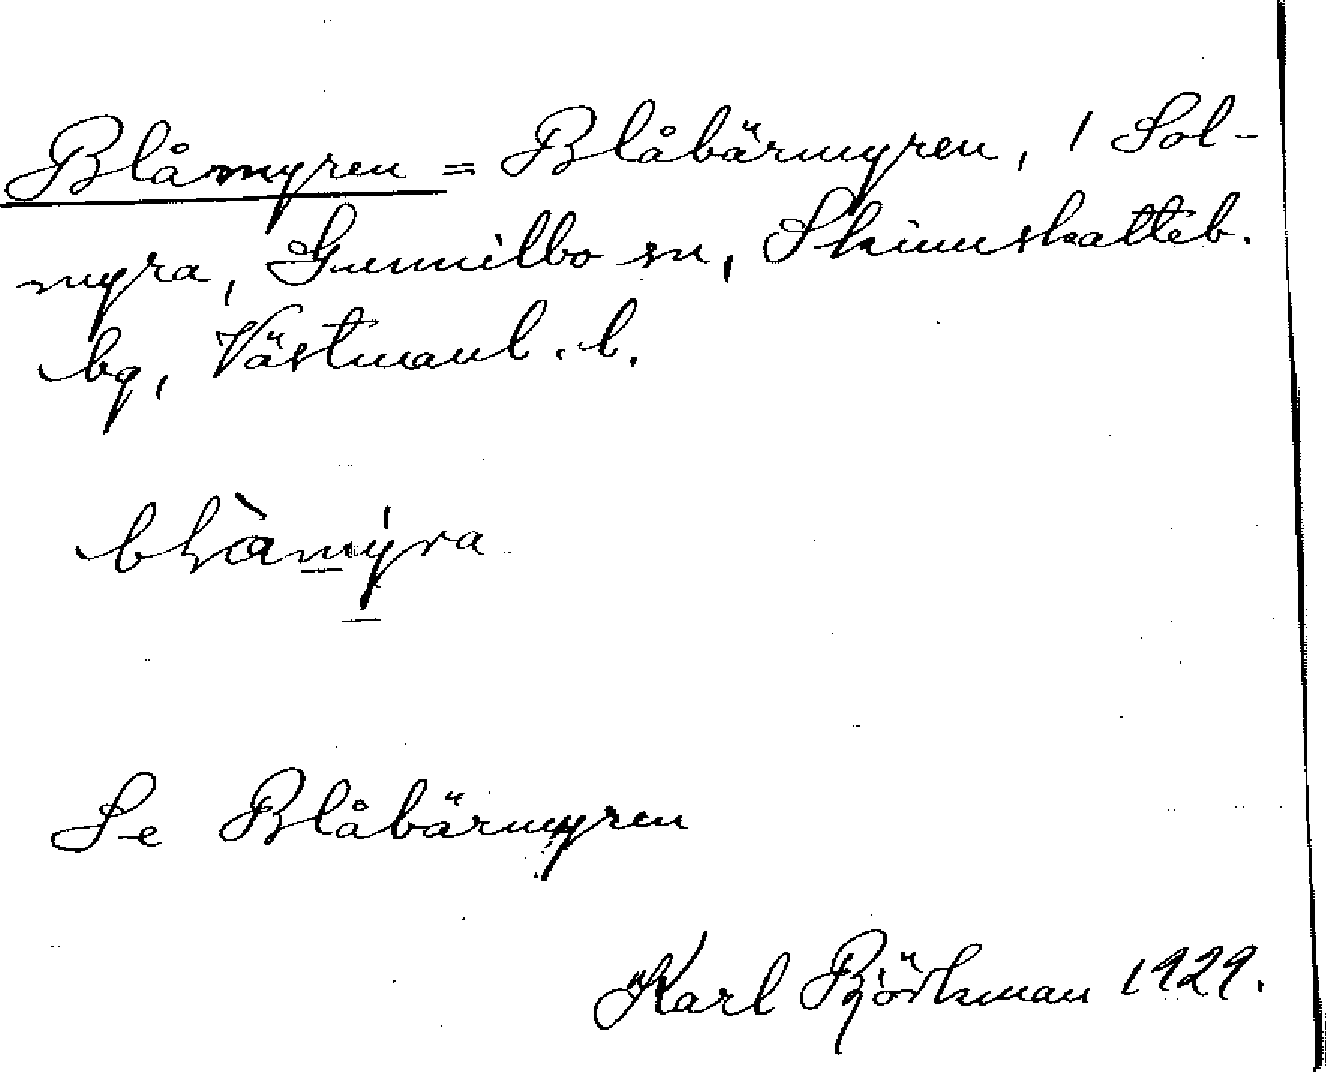 Blåmyren = Blåbärmyren, 1 Sol-
myra, Gunnilbo sn, Skinnskatteb.
bg, Västmanl. l.
bḷàmy̲ra
Se Blåbärmyren
Karl Björkman 1929.